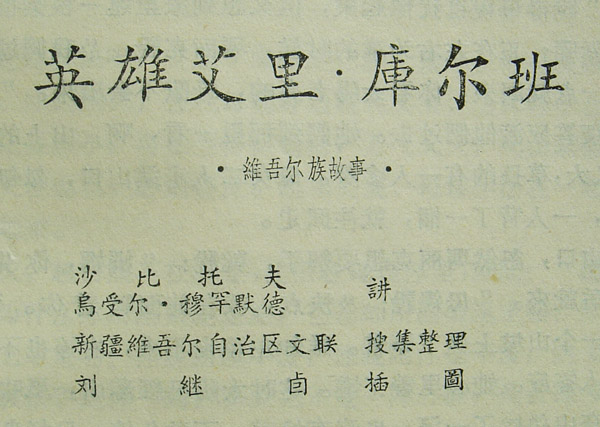 英雄艾里·庫尔班
·維吾尔族故事·
沙比托夫
烏受尔·穆罕默德 講
新疆維吾尔自治区文联 搜集整理
刘継卣 插圖